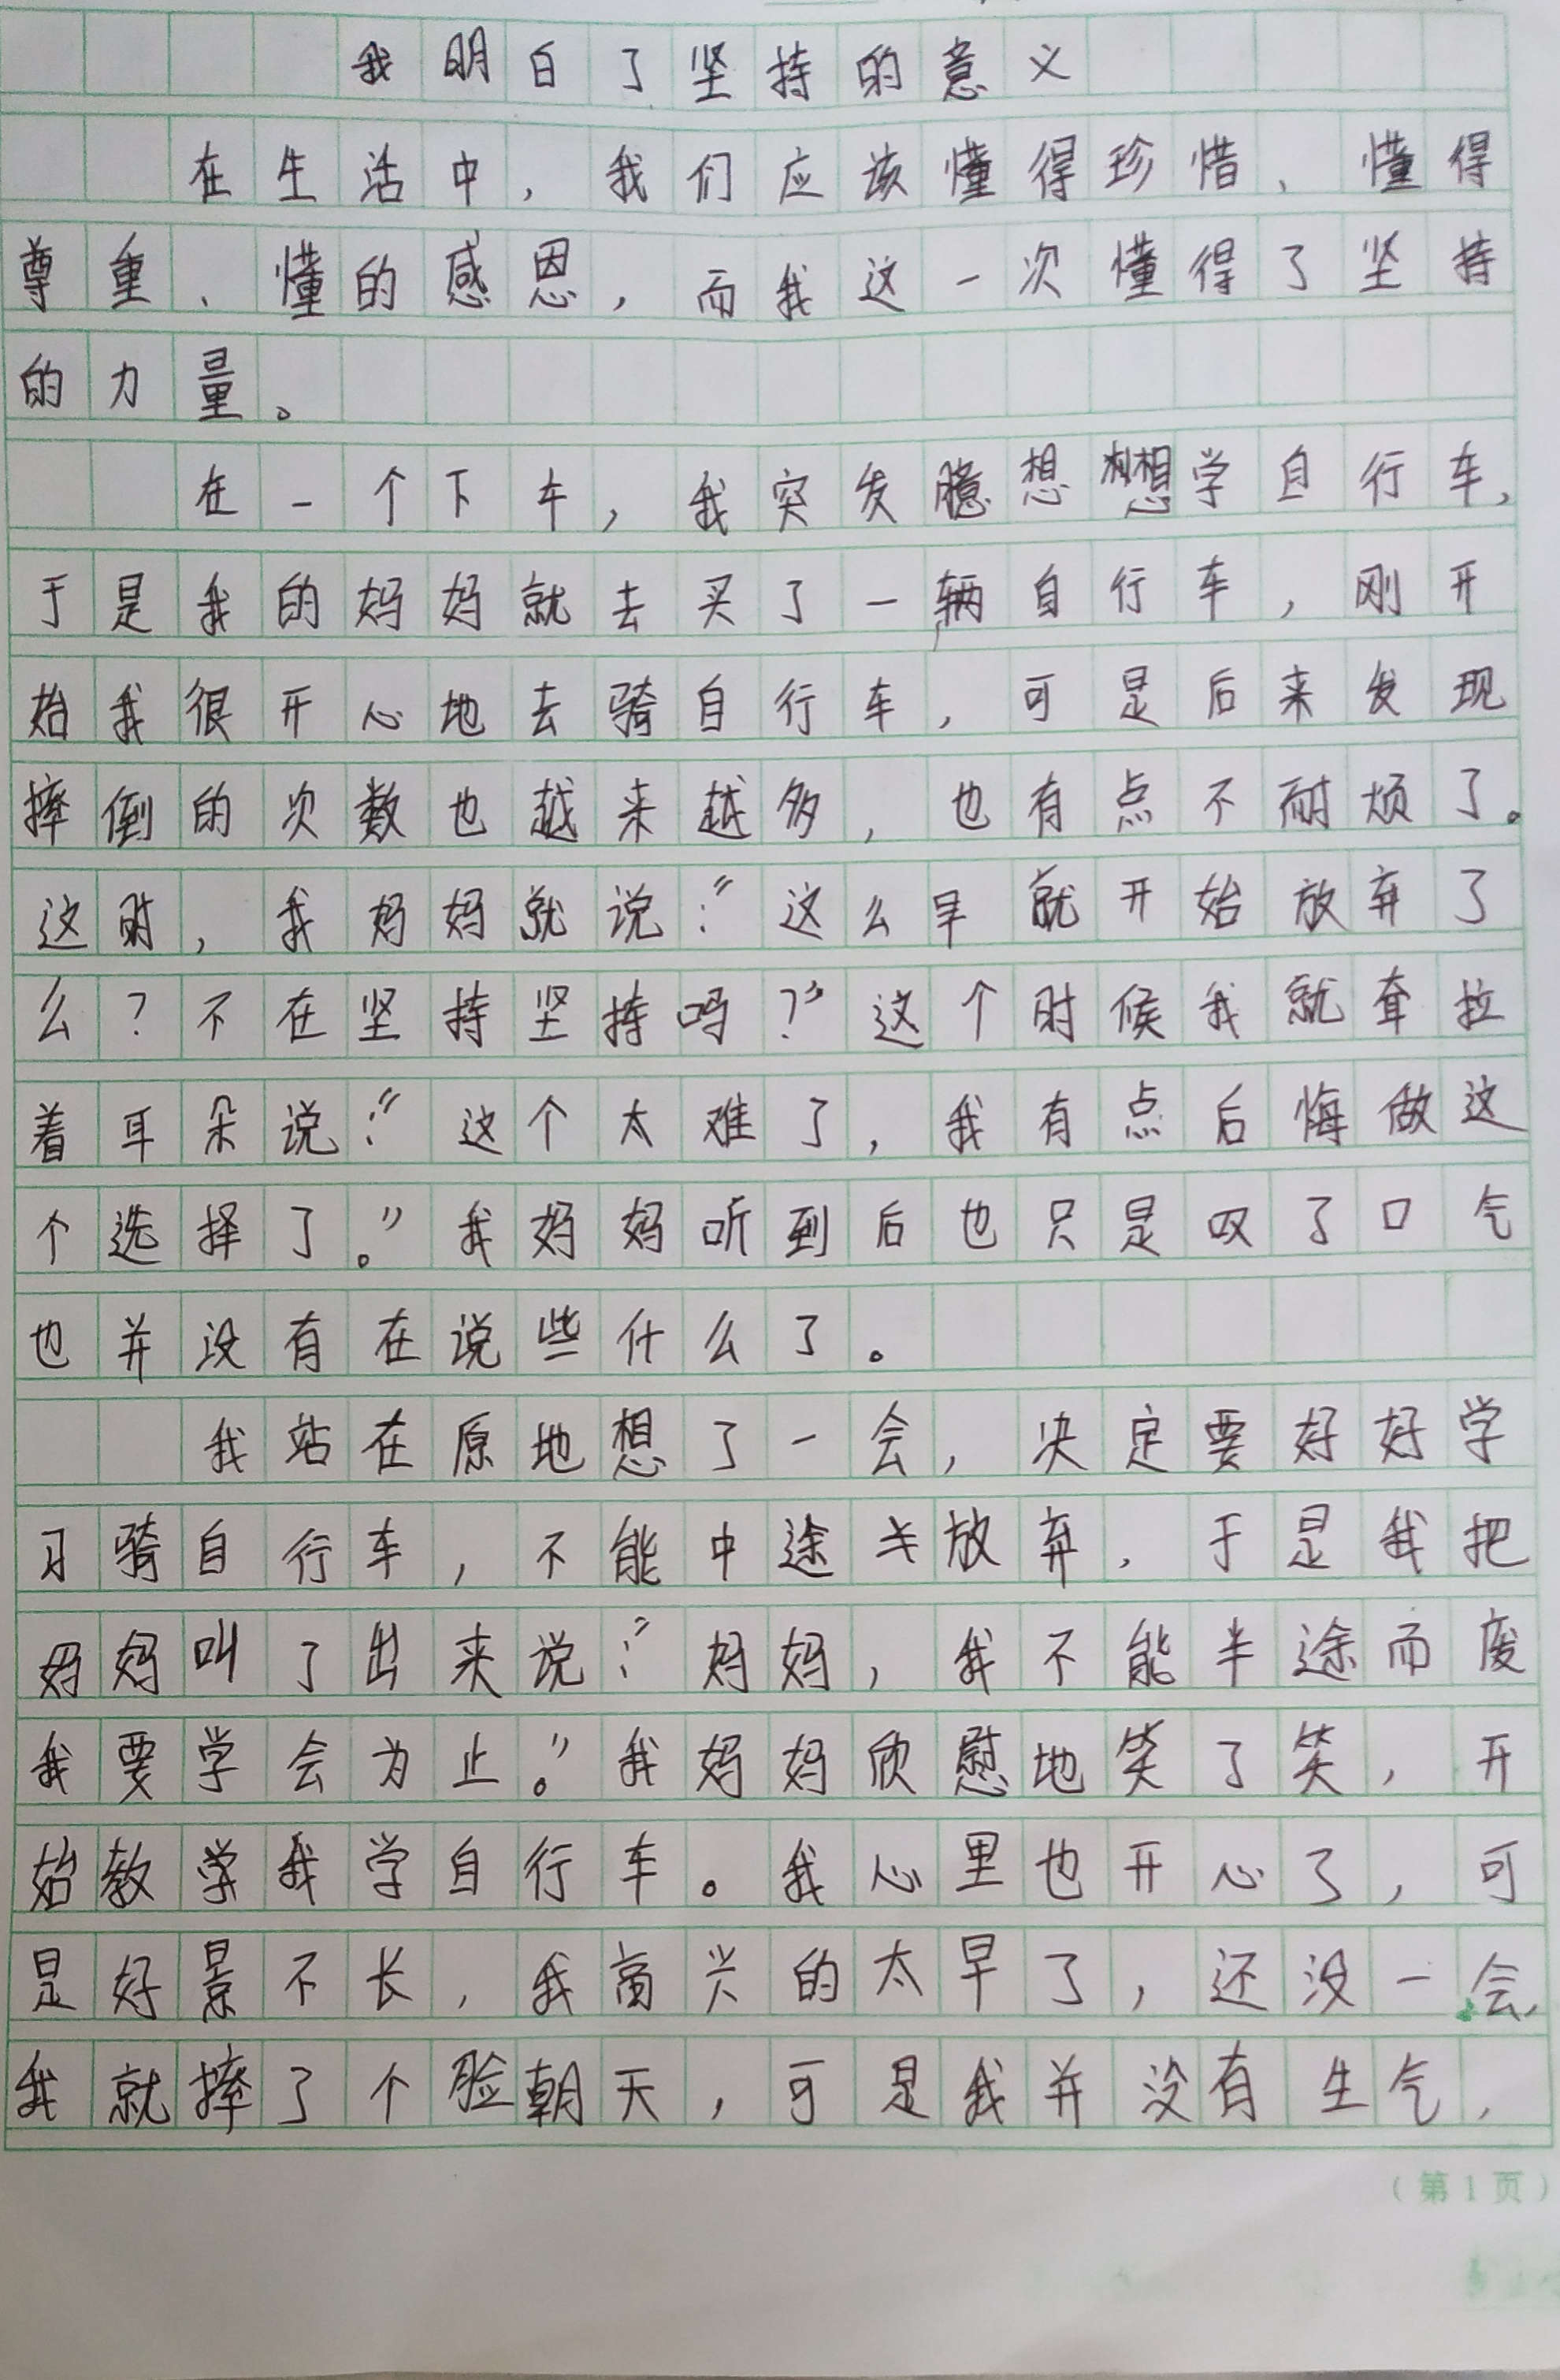 我明白了坚持的意义
在生活中，我们应该懂得珍惜、懂得
尊重、懂的感恩，而我这一次懂得了坚持
的力量。
在一个下车，我突发臆想想学自行车，
于是我的妈妈就去买了一辆自行车，刚开
始我很开心地去骑自行车，可是后来发现
摔倒的次数也越来越多，也有点不耐烦了。
这时，我妈妈就说：“这么早就开始放弃了
么？不在坚持坚持吗？”这个时候我就耷拉
着耳朵说：“这个太难了，我有点后悔做这
个选择了。”我妈妈听到后也只是叹了口气
也并没有在说些什么了。
我站在原地想了一会，决定要好好学
习骑自行车，不能中途放弃，于是我把
妈妈叫了出来说：“妈妈，我不能半途而废
我要学会为止。”我妈妈欣慰地笑了笑，开
始教学我学自行车。我心里也开心了，可
是好景不长，我高兴的太早了，还没一会，
我就摔了个脸朝天，可是我并没有生气，
（第1页）